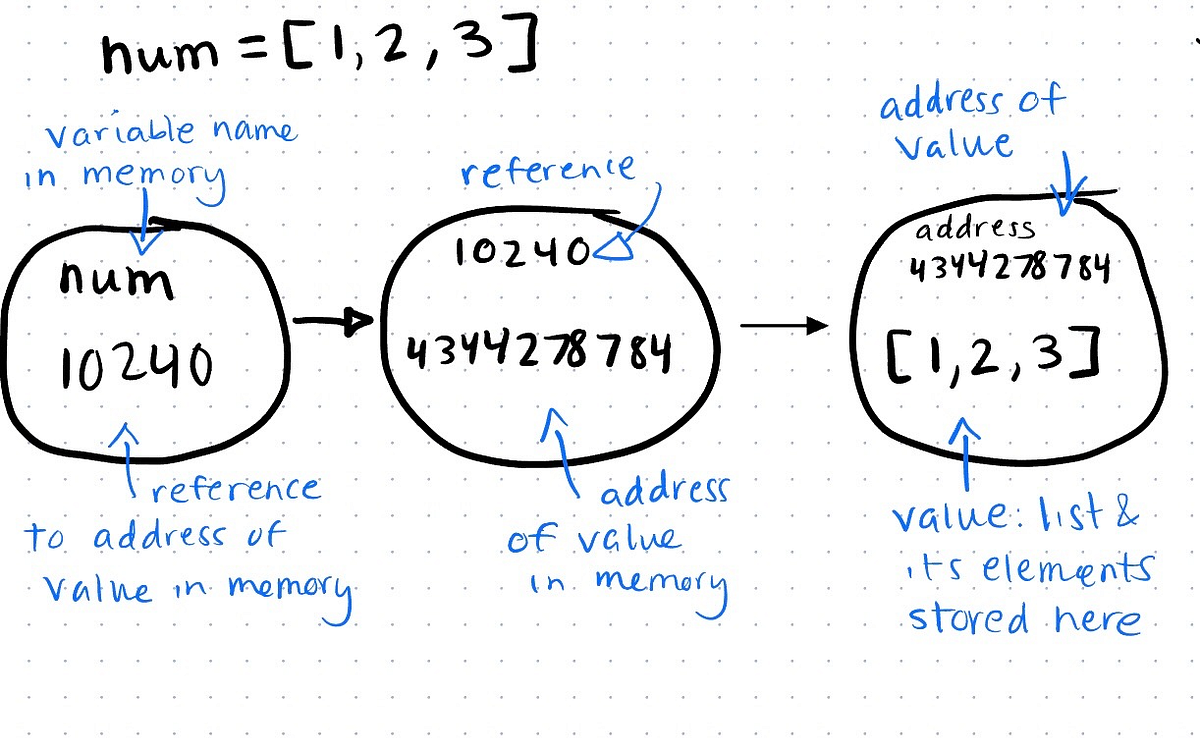 num = [1, 2, 3]
variable name
in memory
num
10240
reference
to address of
value in memory
reference
10240
4344278784
address
of value
in memory
address of
value
address
4344278784
[1, 2, 3]
value: list &
its elements
stored here